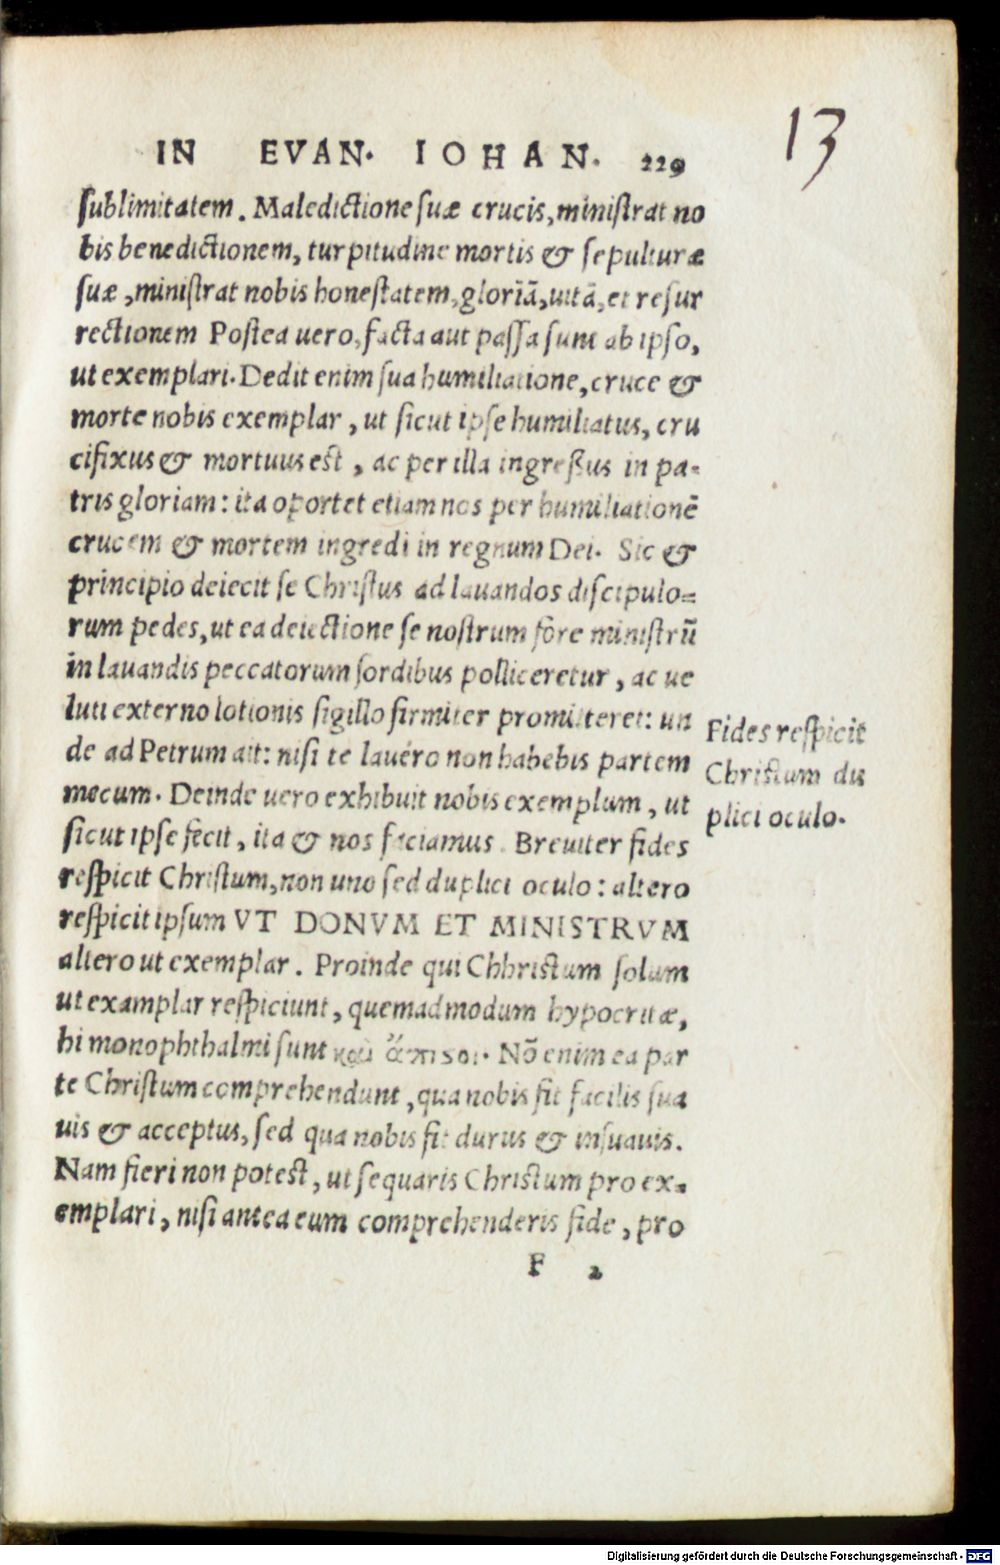 13
IN EVAN. IOHAN. 229
sublimitatem. Maledictione suæ crucis, ministrat no
bis benedictionem, turpitudine mortis & sepulturæ
suæ, ministrat nobis honestatem, gloriā, uitā, et resur
rectionem Postea uero, facta aut passa sunt ab ipso,
ut exemplari. Dedit enim sua humiliatione, cruce &
morte nobis exemplar, ut sicut ipse humiliatus, cru
cifixus & mortuus est, ac per illa ingressus in pa-
tris gloriam: ita oportet etiam nos per humiliationē
crucem & mortem ingredi in regnum Dei. Sic &
principio deiecit se Christus ad lauandos discipulo=
rum pedes, ut ea deiectione se nostrum fore ministrū
in lauandis peccatorum sordibus polliceretur, ac ue
luti externo lotionis sigillo firmiter promitteret: un
de ad Petrum ait: nisi te lauéro non habebis partem
mecum. Deinde uero exhibuit nobis exemplum, ut
sicut ipse fecit, ita & nos faciamus. Breuiter fides
respicit Christum, non uno sed duplici oculo: altero
respicit ipsum VT DONVM ET MINISTRVM
altero ut exemplar. Proinde qui Chhristum solum
ut examplar respiciunt, quemadmodum hypocritæ,
hi monophthalmi sunt καὶ ἄπιστοι. Nō enim ea par
te Christum comprehendunt, qua nobis fit facilis sua
uis & acceptus, sed qua nobis fit durus & insuauis.
Nam fieri non potest, ut sequaris Christum pro ex-
emplari, nisi antea eum comprehenderis fide, pro
F 2
Fides respicit
Christum du
plici oculo.
Digitalisierung gefördert durch die Deutsche Forschungsgemeinschaft - DFG